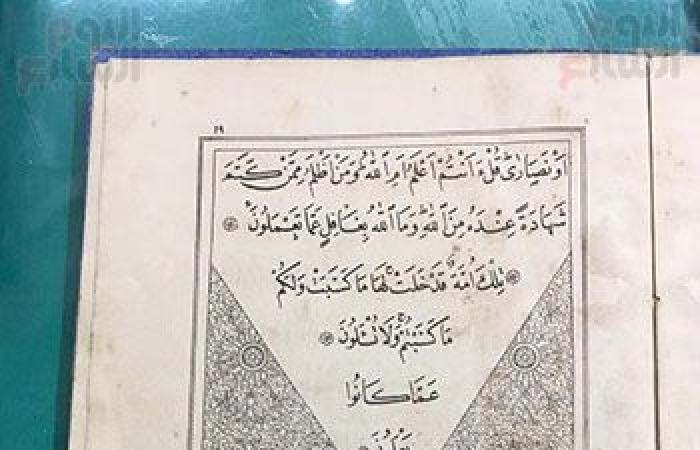 اليوم السابع
اليوم السابع
١٩
اَوْ نَصَارٰىؕ قُلْ ءَاَنْتُمْ اَعْلَمُ اَمِ اللّٰهُؕ وَمَنْ اَظْلَمُ مِمَّنْ كَتَمَ
شَهَادَةً عِنْدَهُ مِنَ اللّٰهِؕ وَمَا اللّٰهُ بِغَافِلٍ عَمَّا تَعْمَلُونَ
تِلْكَ اُمَّةٌ قَدْ خَلَتْۚ لَهَا مَا كَسَبَتْ وَلَكُمْ
مَا كَسَبْتُمْۚ وَلَا تُسْئَلُونَ
عَمَّا كَانُوا
يَعْمَلُونَ